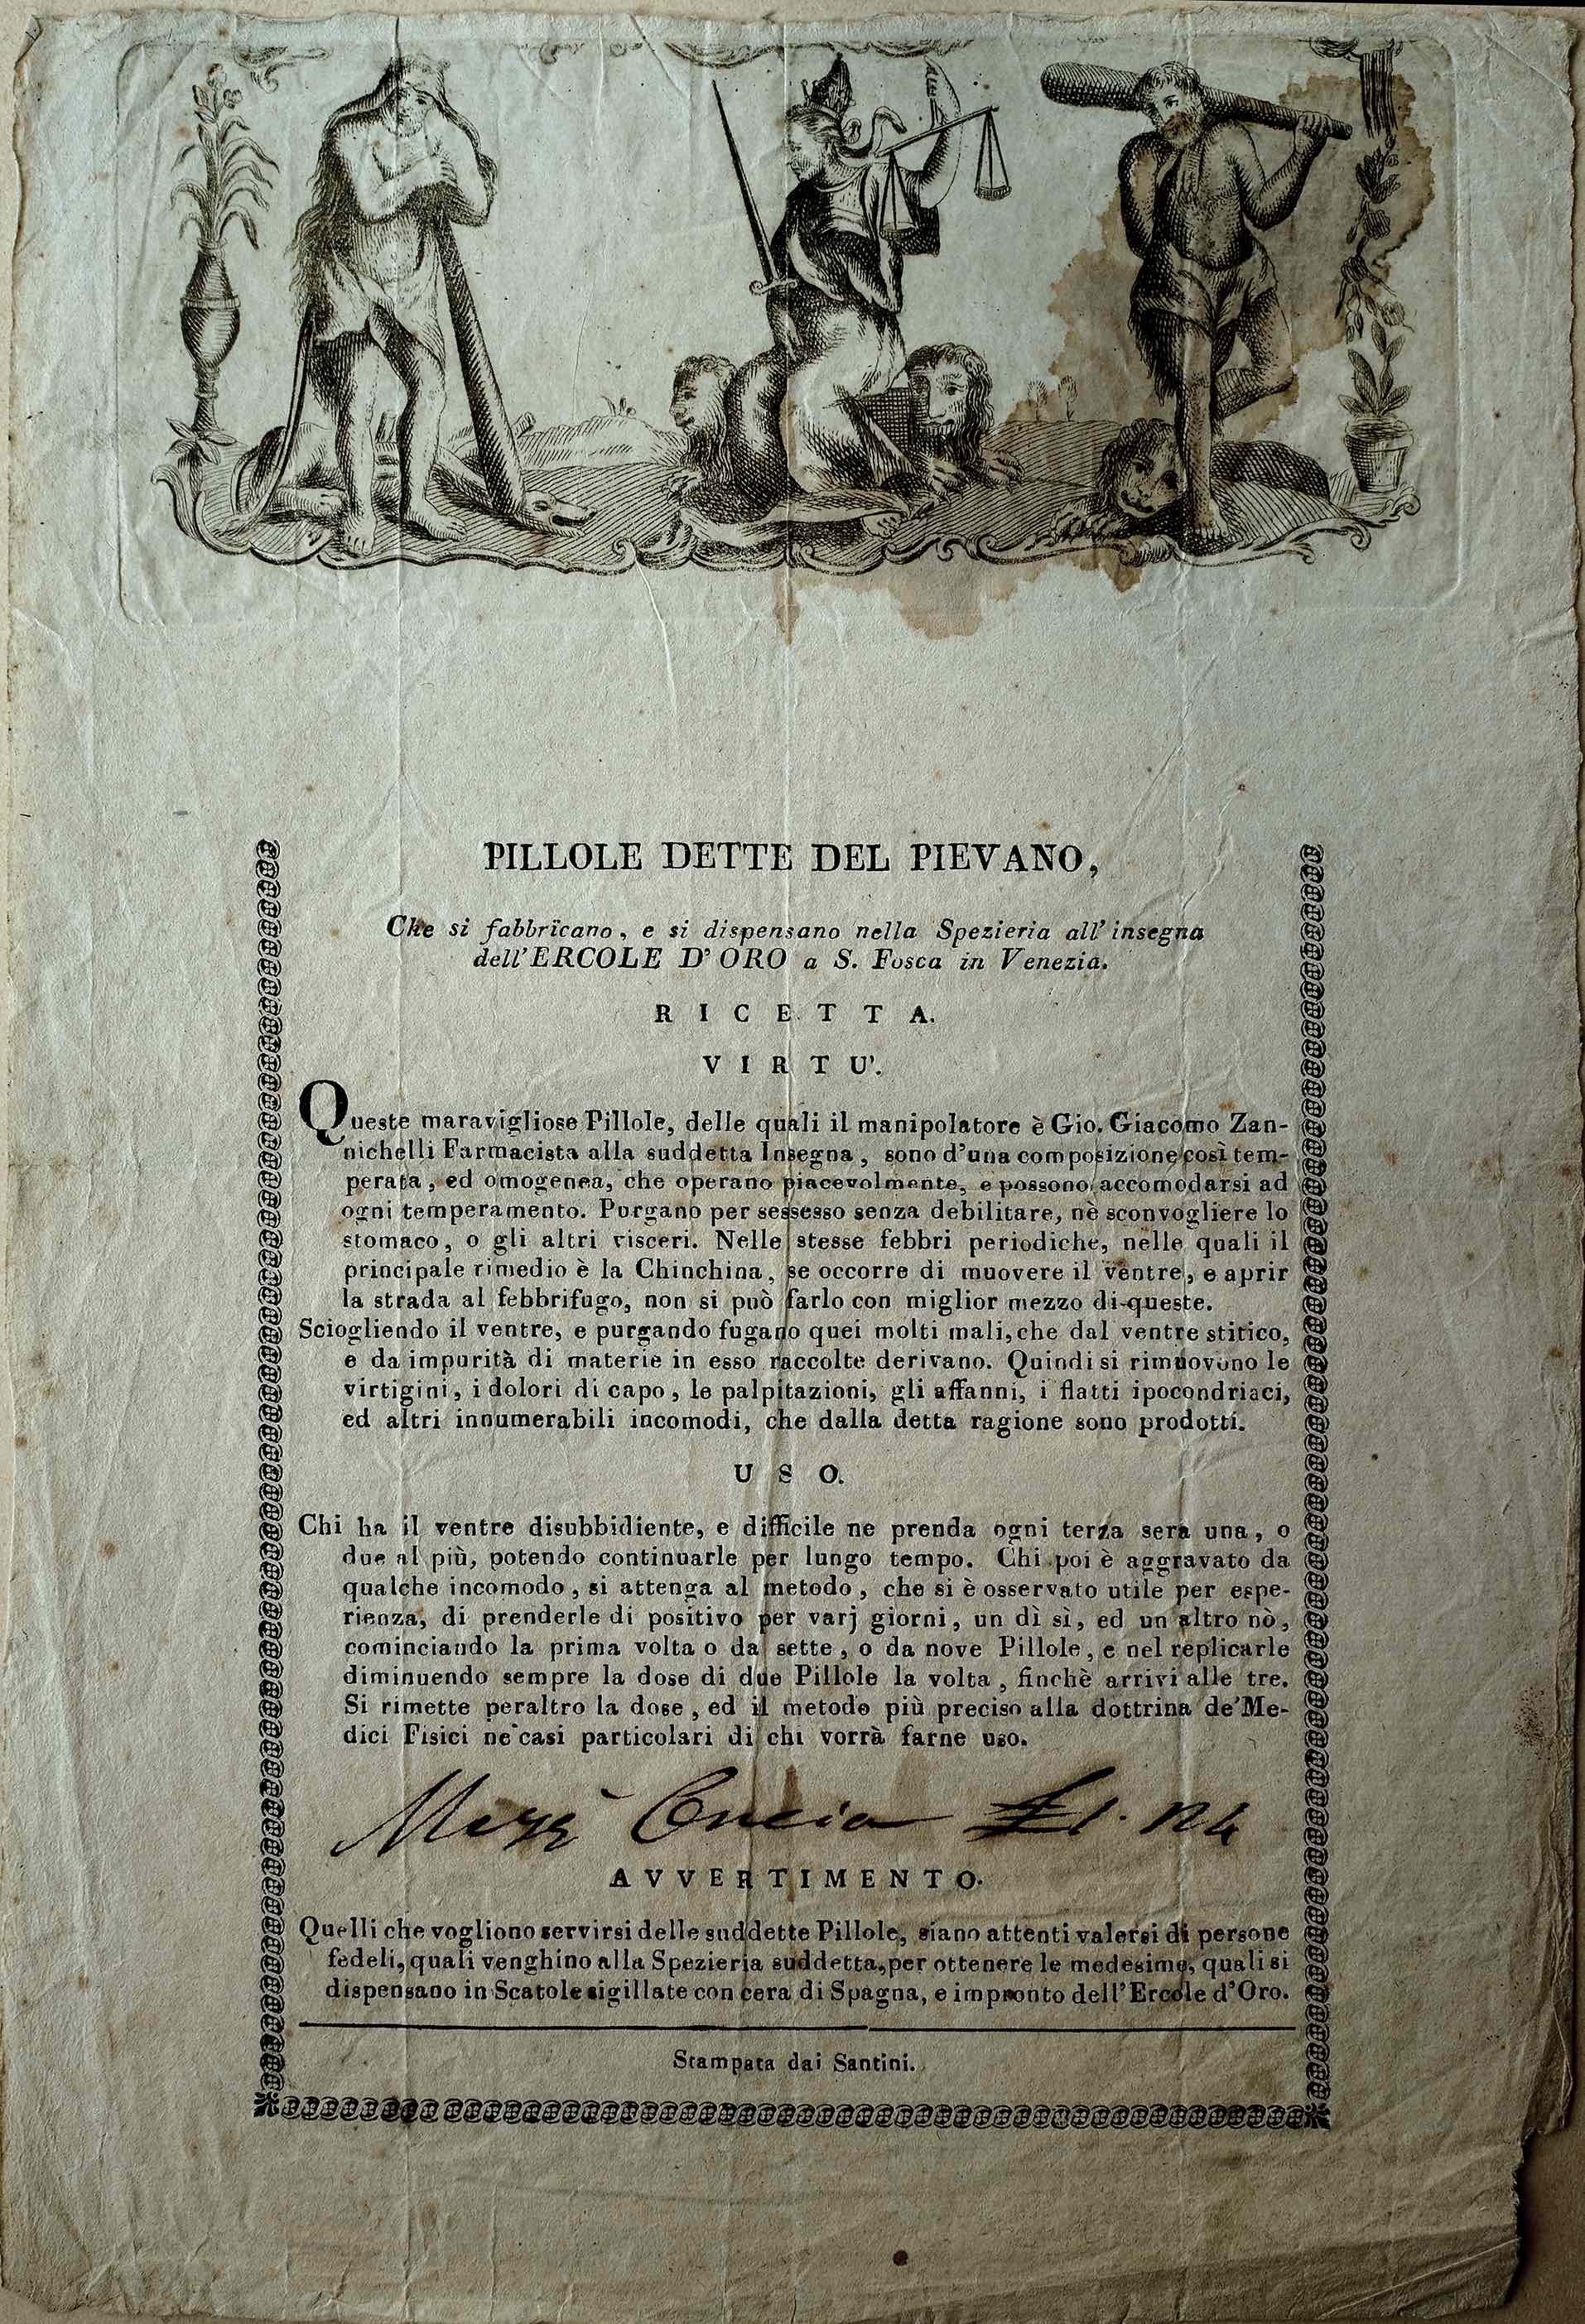 PILLOLE DETTE DEL PIEVANO,
Che si fabbricano, e si dispensano nella Spezieria all' insegna
dell' ERCOLE D' ORO a S. Fosca in Venezia.
RICETTA.
VIRTU'.
Queste maravigliose Pillole, delle quali il manipolatore è Gio. Giacomo Zan-
nichelli Farmacista alla suddetta Insegna, sono d'una composizione così tem-
perata, ed omogenea, che operano piacevolmente, e possono accomodarsi ad
ogni temperamento. Purgano per sessesso senza debilitare, nè sconvogliere lo
stomaco, o gli altri visceri. Nelle stesse febbri periodiche, nelle quali il
principale rimedio è la Chinchina, se occorre di muovere il ventre, e aprir
la strada al febbrifugo, non si può farlo con miglior mezzo di queste.
Sciogliendo il ventre, e purgando fugano quei molti mali, che dal ventre stitico,
e da impurità di materie in esso raccolte derivano. Quindi si rimuovono le
virtigini, i dolori di capo, le palpitazioni, gli affanni, i flatti ipocondriaci,
ed altri innumerabili incomodi, che dalla detta ragione sono prodotti.
USO.
Chi ha il ventre disubbidiente, e difficile ne prenda ogni terza sera una, o
due al più, potendo continuarle per lungo tempo. Chi poi è aggravato da
qualche incomodo, si attenga al metodo, che si è osservato utile per espe-
rienza, di prenderle di positivo per varj giorni, un dì sì, ed un altro nò,
cominciando la prima volta o da sette, o da nove Pillole, e nel replicarle
diminuendo sempre la dose di due Pillole la volta, finchè arrivi alle tre.
Si rimette peraltro la dose, ed il metodo più preciso alla dottrina de' Me-
dici Fisici ne' casi particolari di chi vorrà farne uso.
AVVERTIMENTO.
Quelli che vogliono servirsi delle suddette Pillole, siano attenti valersi di persone
fedeli, quali venghino alla Spezieria suddetta, per ottenere le medesime, quali si
dispensano in Scatole sigillate con cera di Spagna, e impronto dell' Ercole d'Oro.
Stampata dai Santini.